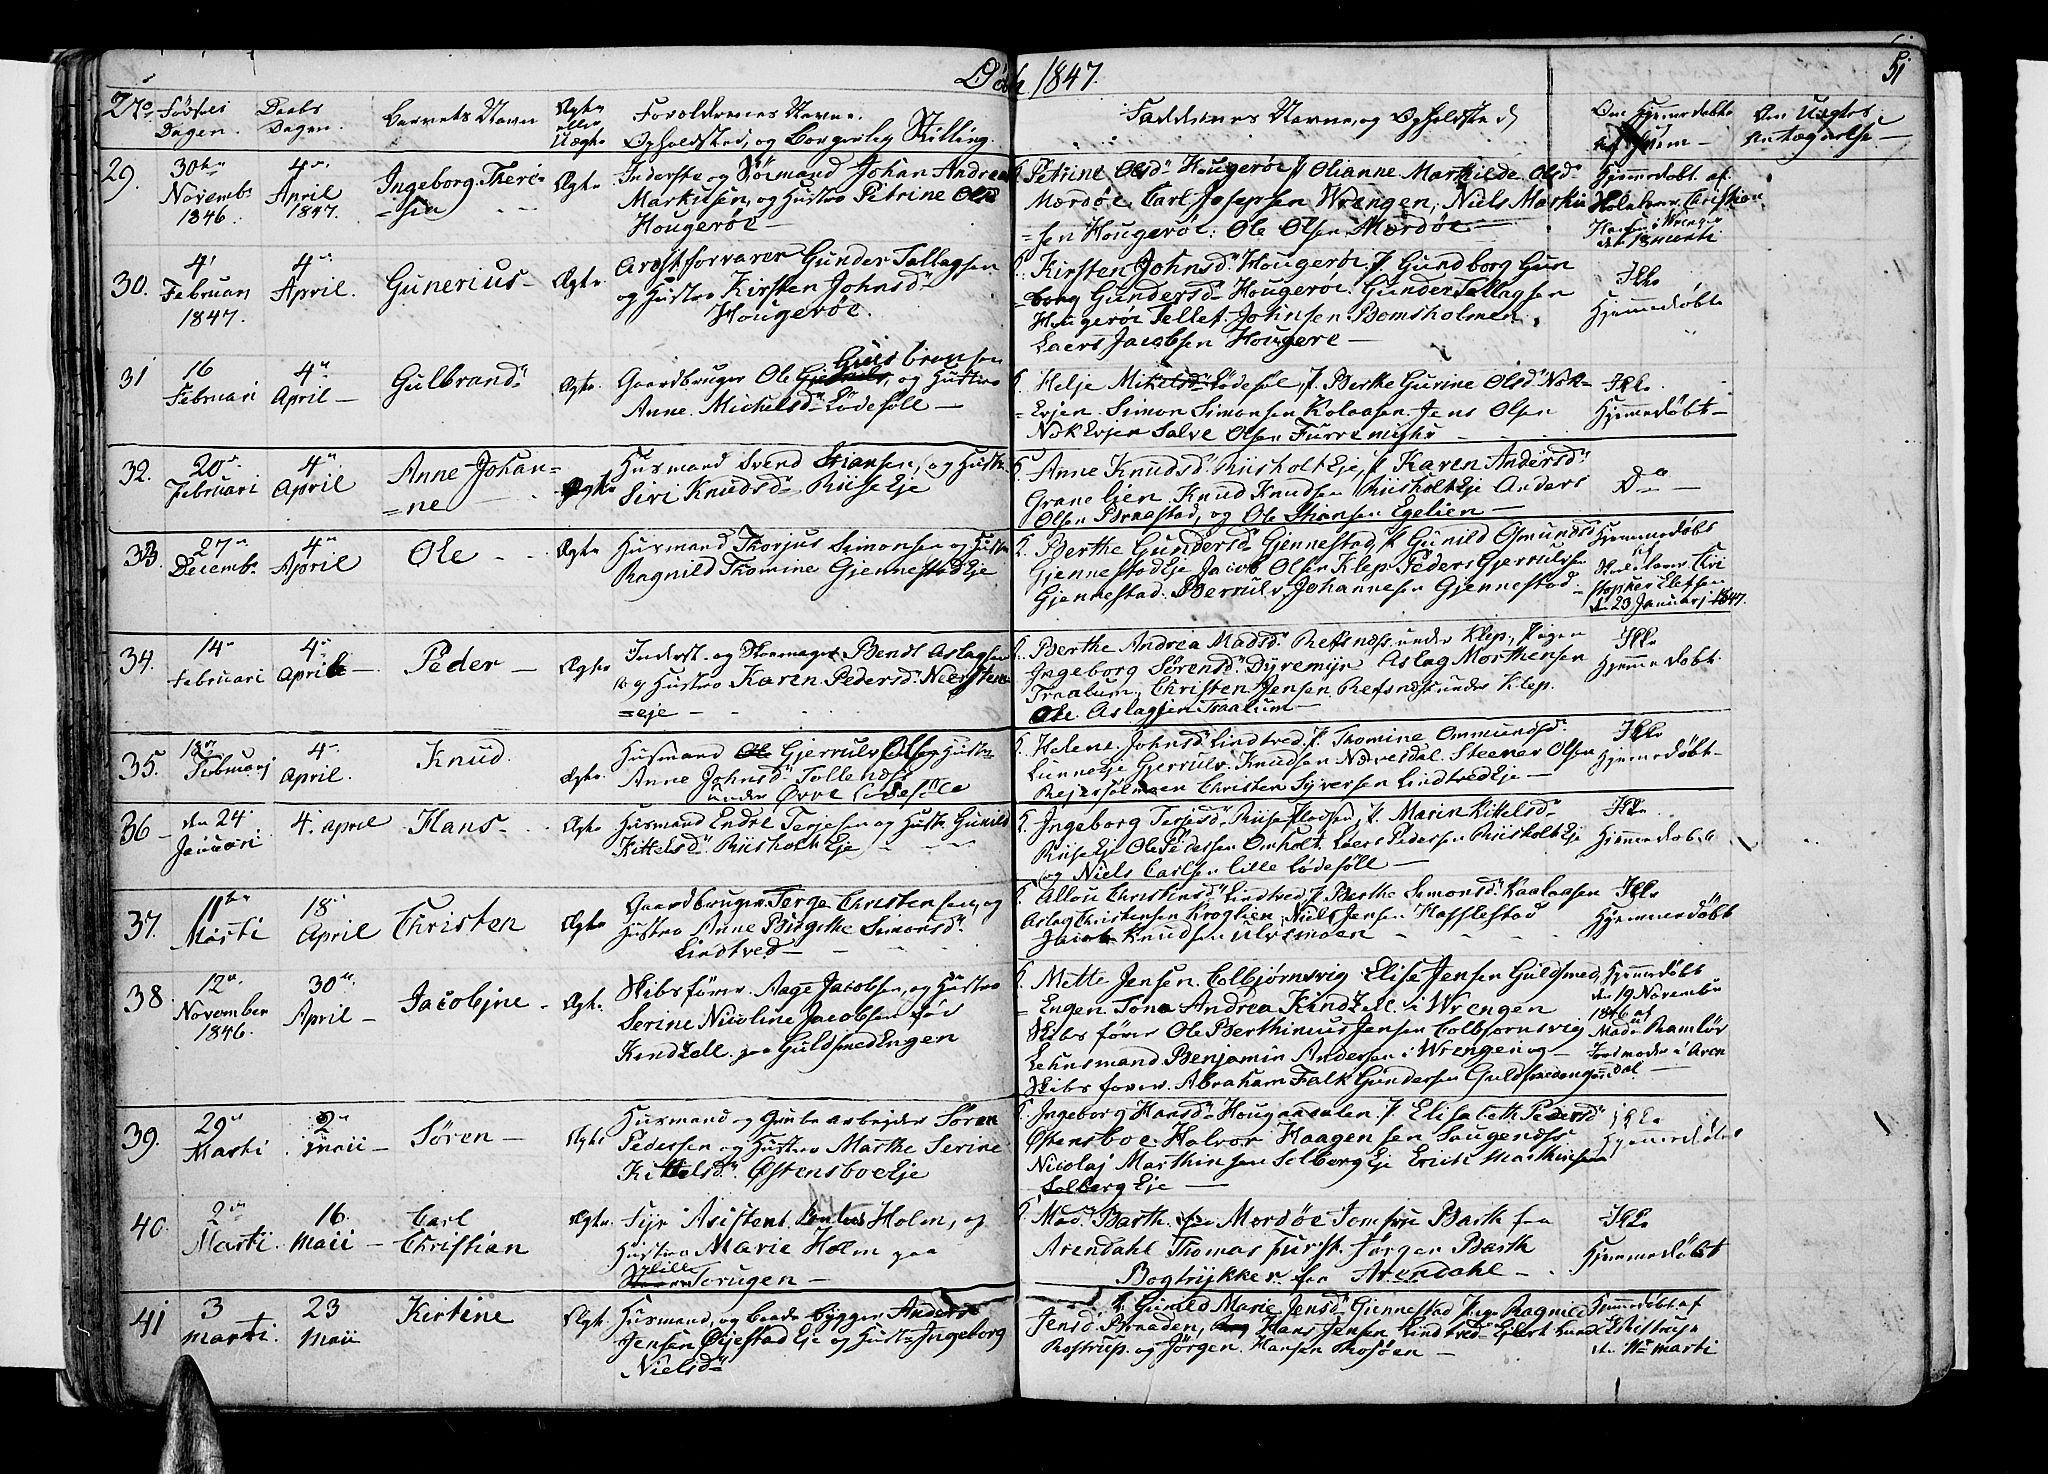 Döbte 1847.
51
No Födsels Dagen. Daabs Dagen. Barnets Navn Ægte eller Uægte Foreldrenes Navne, Opholdsted, og Borgerlig Stilling. Faddernes Navne, og Opholdsted Om Hjemmedöbt af Hvem — Om Uægtes Antægnelse —
29. 30te Novemb. 1846. 4de April 1847. Ingeborg Theri=
=sia Ægte
Inderste og Sömand Johan Andreas
Markusen, og Hustro Petrine Olsd
Hougeröe —
Petrine Olsd Hougeröe, Olianne Markilde Olsd
Mærdöe, Carl Josepsen Wrengen, Niels Marku
=sen Hougeröe, Ole Olsen Mærdöe —
Hjemmedöbt af
Holelærer Christian
Hansen i Wrengen
den 13 Marti
30. 4 Februari 1847. 4de April. Gunerius — Ægte
Arestforvarer Gunder Tallagsen
og Hustro Kirsten Johnsd
Hougeröe.
Kirsten Johnsd Hougeröe, Gundborg Gun
borg Gundersd Hougeröe, Gunder Tallagsen
Hougeröe Tellef Johnsen Bomsholmen
Laers Jacobsen Hougere —
Ikke
Hjemmedöbt
31 16 Februari 4de April — Gulbrand Ægte
Gulbransen
Gaardbruger Ole, og Hustro
Anne Michelsd Lödesöll —
Helje Mikelsd Lödesöl, Berthe Gurine Olsd Nök=
=Evjen. Simon Simonsen Kolaasen. Jens Olsen
Nök Evjen Salve Olsen Furremyhr
Ikke
Hjemmedöbt —
32. 20de Februari 4de April Anne Johan=
=ne Ægte
Husmand Svend Stiansen, og Hustro
Siri Knudsd Riise Eje
Anne Knudsd Riisholt Eje, Karen Andersd
Granelien, Knud Knudsen Riisholt Eje Anders
Olsen Braastad, og Ole Stiansen Egelien —
Do —
33. 27de Decemb. 4de April Ole Ægte
Husmand Thorjus Simonsen og Hustro
Ragnild Thomine Gjennestad Eje
Berthe Gundersd Gjennestad, Gunild Osmundsd
Gjennestad Eje Jacob Olsen Klep. Peder Gjerulvsen
Gjennestad. Berrulv Johannesen Gjennestad
Hjemmedöbt
af
Skolelærer Chri
stopher Elefsen
den 23 Januarj 1847.
34. 14de Februari 4de April — Peder — Ægte
Inderst. og Skoemager Bendt Aslagsen
og Hustro Karen Pedersd Neersteen
=eje —
Berthe Andrea Madsd Refsnæs under Klep, Pigen
Ingeborg Sörensd Dyremyr Aslag Morthensen
Traalum, Christen Jensen Refsnæs under Klep.
Ole Aslagsen Traalum —
Ikke
Hjemmedöbt
35. 18de Februarj 4de April. Knud. Ægte.
Husmand Gjerrulv Olsen og Hustro
Anne Johnsd Tollends
under Övre Lödesöle
Helene Johnsd Lindtved, Thomine Ommundsd
Lunne Eje Gjerrulv Knudsen Næresdal. Steenar Olsen
Rejersholmen Christen Syversen Lindtved Eje —
Ikke
Hjemmedöbt —
36 — den 24de Januari 4. April Hans — Ægte
Husmand Endre Terjesen og Hustr. Gunild
Kittelsd Riisholt Eje
Ingeborg Terjesd Riise, Maren Kittelsd
Riise Eje Ole Pedersen Omholt. Laers Pedersen Riisholt Eje
og Niels Carlsen Lille Lödesöll —
Ikke
Hjemmedöbt
37. 11te Marti 18de April Christen Ægte
Gaardbruger Terge Christensen, og
Hustro Anne Birgethe Simonsd
Lindtved —
Christensd Lindtved, Berthe Simonsd Kaalaasen
Aslag Christensen Kroglien, Niels Jensen Hafflestad
Jacob Knudsen Ulvemoen
Ikke
Hjemmedöbt
38. 12te November 1846. 30te April — Jacobjne — Ægte.
Skibsförer Aage Jacobsen, og Hustro
Serine Nicoline Jacobsen föd
Kindzell. paa Guldsmedengen
Mette Jensen, Colbjørnsvig. Elise Jensen Guldsmed,
=Engen Tona Andrea Kindzell. i Wrengen
Skibsförer Ole Berthinius Jensen Colbjornsvig
Lehnsmand Benjamin Andersen i Wrengen og —
Skibsförer. Abraham Falk Gundersen Guldsmedengen
Hjemmedöbt
den 19 November
1846 af
Mad. Ramlöv
Jordmoder i Aren
=dal. —
39. 29de Marti 2de Maii — Sören — Ægte
Husmand og Grubearbejder Sören
Pedersen og Hustro Marthe Serine
Kittelsd Östensboe Eje
Ingeborg Hansd Hougaadalen. Elisabeth Pedersd
Östensboe. Halvor Haagensen Laugends
Nicolaj Marthinsen Solberg Eje Erich Marthinsen
Solberg Eje —
Ikke
Hjemmedöbt
40. 2den Marti. 16 Maii — Carl
Christian Ægte
Fyr Asistent Holm, og
Hustro Marie Holm paa
Lille
Torugen —
Mad. Barth. fra Mordöe Jomfru Barth fra
Arendahl Thomas Furst. Jörgen Barth
Bogtrykker fra Arendahl —
Ikke
Hjemmedöbt
41 3 Marti. 23 Maii Kirtine Ægte.
Husmand, og Baadebygger Anders
Jensen Öjestad Eje og Hustro Ingeborg
Nielsd
Gunild Marie Jensd Gjennestad Pige Ragnild
Jensd Braaden, Hans Jensen Lindtved Ejlert Lund
Rostrup. og Jörgen Hansen Rosöen —
Hjemmedöbt af
den 11te Marti